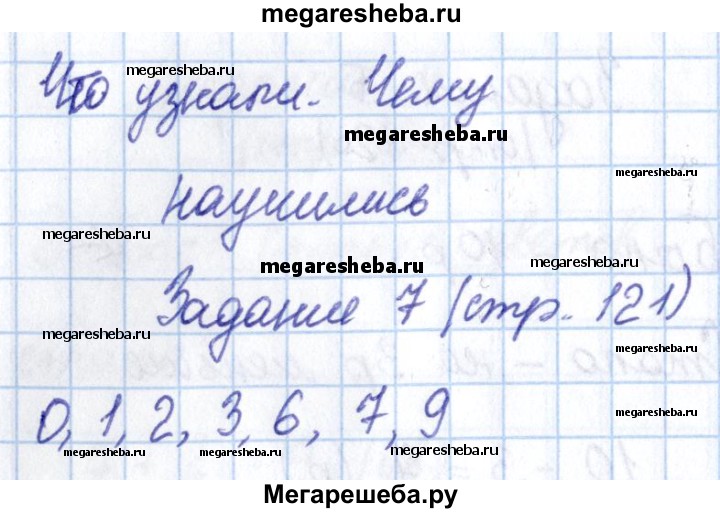 megaresheba.ru
Что узнали. Чему
megaresheba.ru
megaresheba.ru
megaresheba.ru
научились
megaresheba.ru
megaresheba.ru
megaresheba.ru
Задание 7 (стр. 121)
megaresheba.ru
megaresheba.ru
0, 1, 2, 3, 6, 7, 9
megaresheba.ru
megaresheba.ru
megaresheba.ru
megaresheba.ru
Мегарешеба.ру